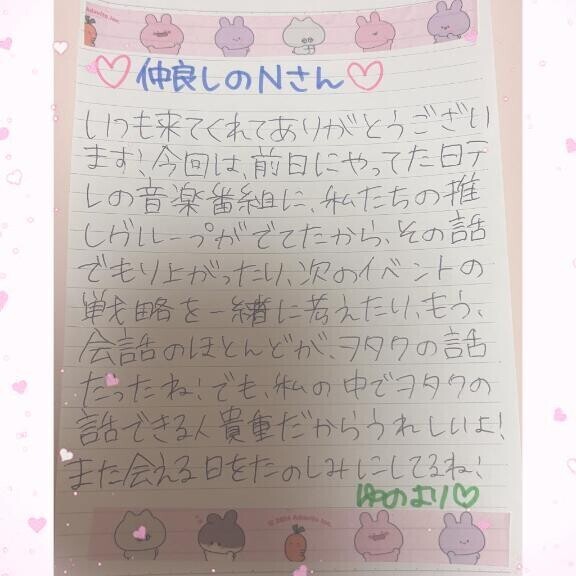 Advertia Inc.
♡仲良しのNさん♡
いつも来てくれてありがとうござい
ます!今回は、前日にやってた日テ
レの音楽番組に、私たちの推
しグループがでてたから、その話
でもり上がったり、次のイベントの
戦略を一緒に考えたり、もう、
会話のほとんどが、ヲタクの話
だったね!でも、私の中でヲタクの
話できる人貴重だからうれしいよ!
また会える日をたのしみにしてるね!
ゆのより♡